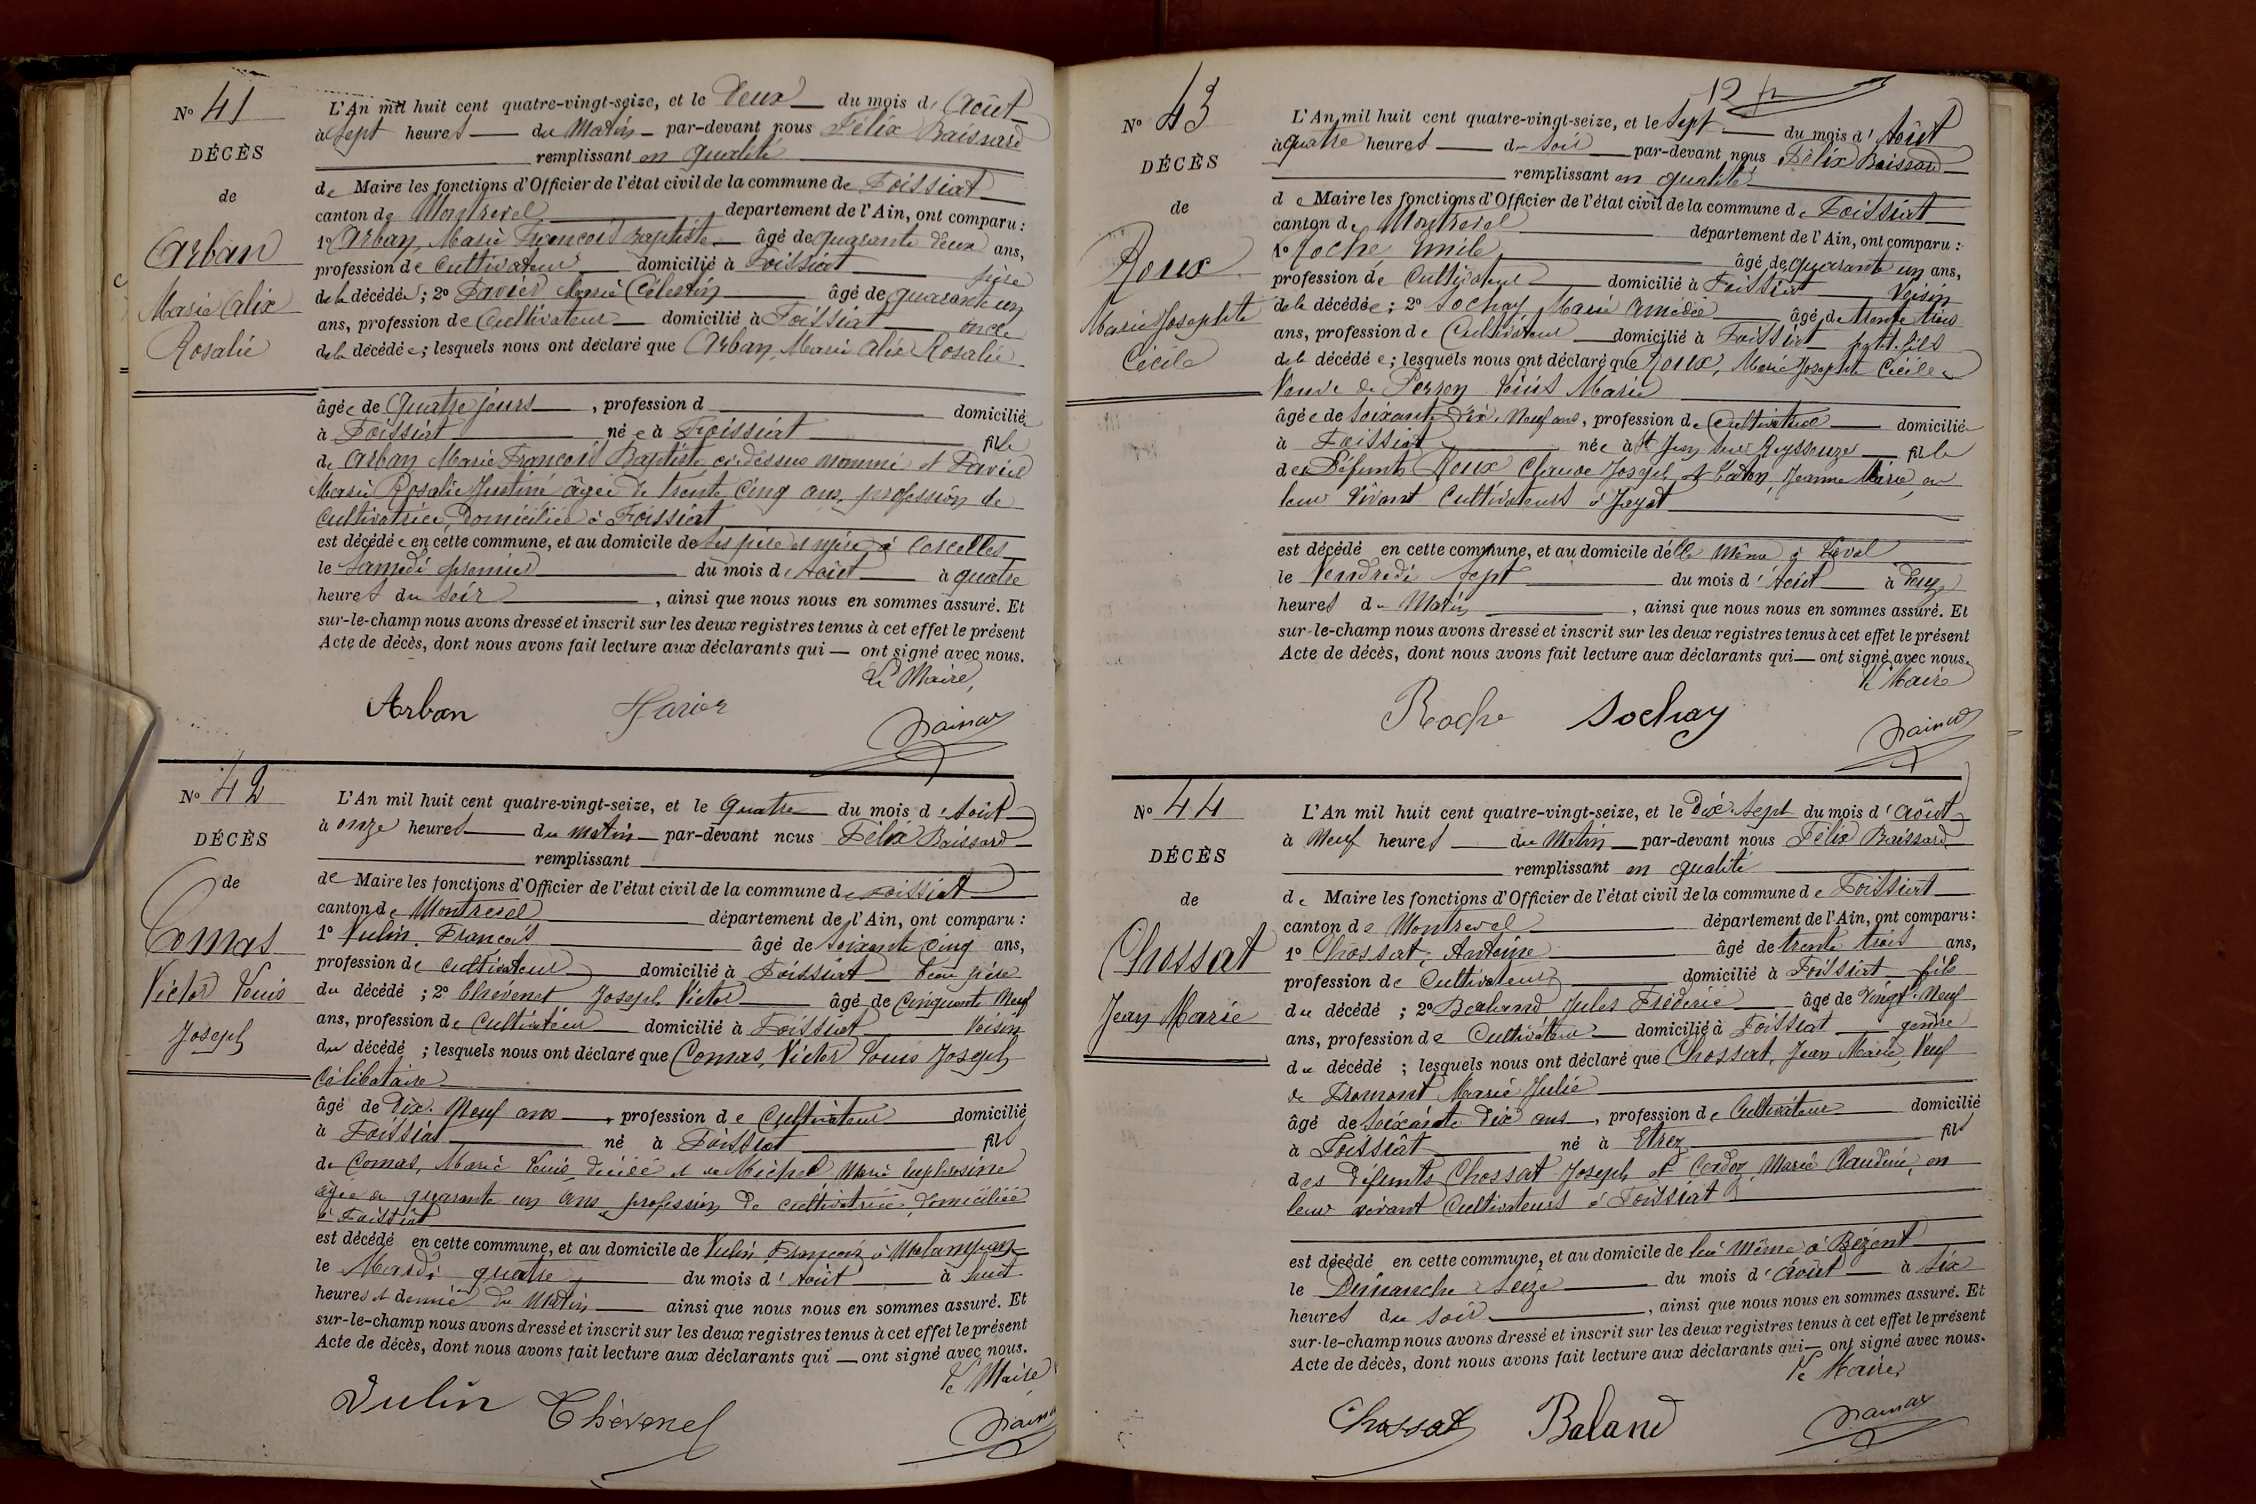 N° 41
DÉCÈS
de
Arban
Marie Alix
Rosalie
L'An mil huit cent quatre-vingt-seize, et le deux du mois d'Août
à Sept heures du Matin par-devant nous Félix Baissard
remplissant en qualité
de Maire les fonctions d'Officier de l'état civil de la commune de Foissiat
canton de Montrevel departement de l'Ain, ont comparu :
1° Arban, Marie François Baptiste âgé de quarante deux ans,
profession de Cultivateur domicilié à Foissiat père
de la décédée ; 2° Marie Célestin âgé de quarante un
ans, profession de Cultivateur domicilié à Foissiat oncle
de la décédée ; lesquels nous ont déclaré que Arban Marie Alix Rosalie
âgée de Quatre jours , profession d domiciliée
à Foissiat née à Foissiat fille
de Arban Marie François Baptiste ci-dessus nommé et
Marie Rosalie Justine âgée de trente cinq ans, profession de
Cultivatrice, domiciliée à Foissiat
est décédée en cette commune, et au domicile de ses père et mère, à Corcelles
le Samedi premier du mois d'Août à quatre
heures du Soir , ainsi que nous nous en sommes assuré. Et
sur-le-champ nous avons dressé et inscrit sur les deux registres tenus à cet effet le présent
Acte de décès, dont nous avons fait lecture aux déclarants qui — ont signé avec nous.
Le Maire,
Arban
N° 42
DÉCÈS
de
Comas
Victor Louis
Joseph
L'An mil huit cent quatre-vingt-seize, et le Quatre du mois d'Août
à onze heures du matin par-devant nous Félix Baissard
remplissant
de Maire les fonctions d'Officier de l'état civil de la commune de Foissiat
canton de Montrevel département de l'Ain, ont comparu :
1° Vulin, François âgé de soixante cinq ans,
profession de cultivateur domicilié à Foissiat beau père
du décédé ; 2° Chévenet, Joseph Victor âgé de Cinquante Neuf
ans, profession de Cultivateur domicilié à Foissiat Voisin
du décédé ; lesquels nous ont déclaré que Comas, Victor Louis Joseph
Célibataire
âgé de Dix-Neuf ans , profession de Cultivateur domicilié
à Foissiat né à Foissiat fils
de Comas, Marie Louis décédé et de Michel Marie Euphrosine
âgée de quarante un ans, profession de cultivatrice, domiciliée
à Foissiat
est décédé en cette commune, et au domicile de Vulin François à
le Mardi quatre du mois d'Août à huit
heures et demie du Matin ainsi que nous nous en sommes assuré. Et
sur-le-champ nous avons dressé et inscrit sur les deux registres tenus à cet effet le présent
Acte de décès, dont nous avons fait lecture aux déclarants qui — ont signé avec nous.
Le Maire
Vulin Chevenet
12
N° 43
DÉCÈS
de
Roux
Marie Josephte
Cécile
L'An mil huit cent quatre-vingt-seize, et le Sept du mois d'Août
à quatre heures du soir par-devant nous Félix Baissard
remplissant en qualité
de Maire les fonctions d'Officier de l'état civil de la commune de Foissiat
canton de Montrevel département de l'Ain, ont comparu :
1° Roche, Emile âgé de quarante un ans,
profession de Cultivateur domicilié à Foissiat Voisin
de la décédée ; 2° Sochay, Marie Amédée âgé de trente trois
ans, profession de Cultivateur domicilié à Foissiat petit-fils
de la décédée ; lesquels nous ont déclaré que Roux, Marie Josephte Cécile
Veuve de Perron Louis Marie
âgée de soixante Dix-Neuf ans , profession de Cultivatrice domiciliée
à Foissiat née à St Jean sur Reyssouze fille
des Défunts Roux Claude Joseph et Jeanne Marie, en
leur vivant Cultivateurs à Jayat
est décédé en cette commune, et au domicile d'elle Même à Laval
le Vendredi Sept du mois d'Août à Deux
heures du Matin , ainsi que nous nous en sommes assuré. Et
sur-le-champ nous avons dressé et inscrit sur les deux registres tenus à cet effet le présent
Acte de décès, dont nous avons fait lecture aux déclarants qui — ont signé avec nous.
Le Maire
Roche Sochay
N° 44
DÉCÈS
de
Chossat
Jean Marie
L'An mil huit cent quatre-vingt-seize, et le Dix-Sept du mois d'Août
à Neuf heures du Matin par-devant nous Félix Baissard
remplissant en qualité
de Maire les fonctions d'Officier de l'état civil de la commune de Foissiat
canton de Montrevel département de l'Ain, ont comparu :
1° Chossat, Antoine âgé de trente trois ans,
profession de Cultivateur domicilié à Foissiat fils
du décédé ; 2° Jules Fréderic âgé de Vingt-Neuf
ans, profession de Cultivateur domicilié à Foissiat gendre
du décédé ; lesquels nous ont déclaré que Chossat, Jean Marie, Veuf
de Fromont Marie Julie
âgé de Soixante Dix ans , profession de Cultivateur domicilié
à Foissiat né à Etrez fils
des Défunts Chossat Joseph et Cordoz, Marie Claudine, en
leur vivant Cultivateurs à Foissiat
est décédé en cette commune, et au domicile de lui Même à Bézent
le Dimanche Seize du mois d'Août à Six
heures du soir , ainsi que nous nous en sommes assuré. Et
sur-le-champ nous avons dressé et inscrit sur les deux registres tenus à cet effet le présent
Acte de décès, dont nous avons fait lecture aux déclarants qui — ont signé avec nous.
Le Maire
Chossat Baland